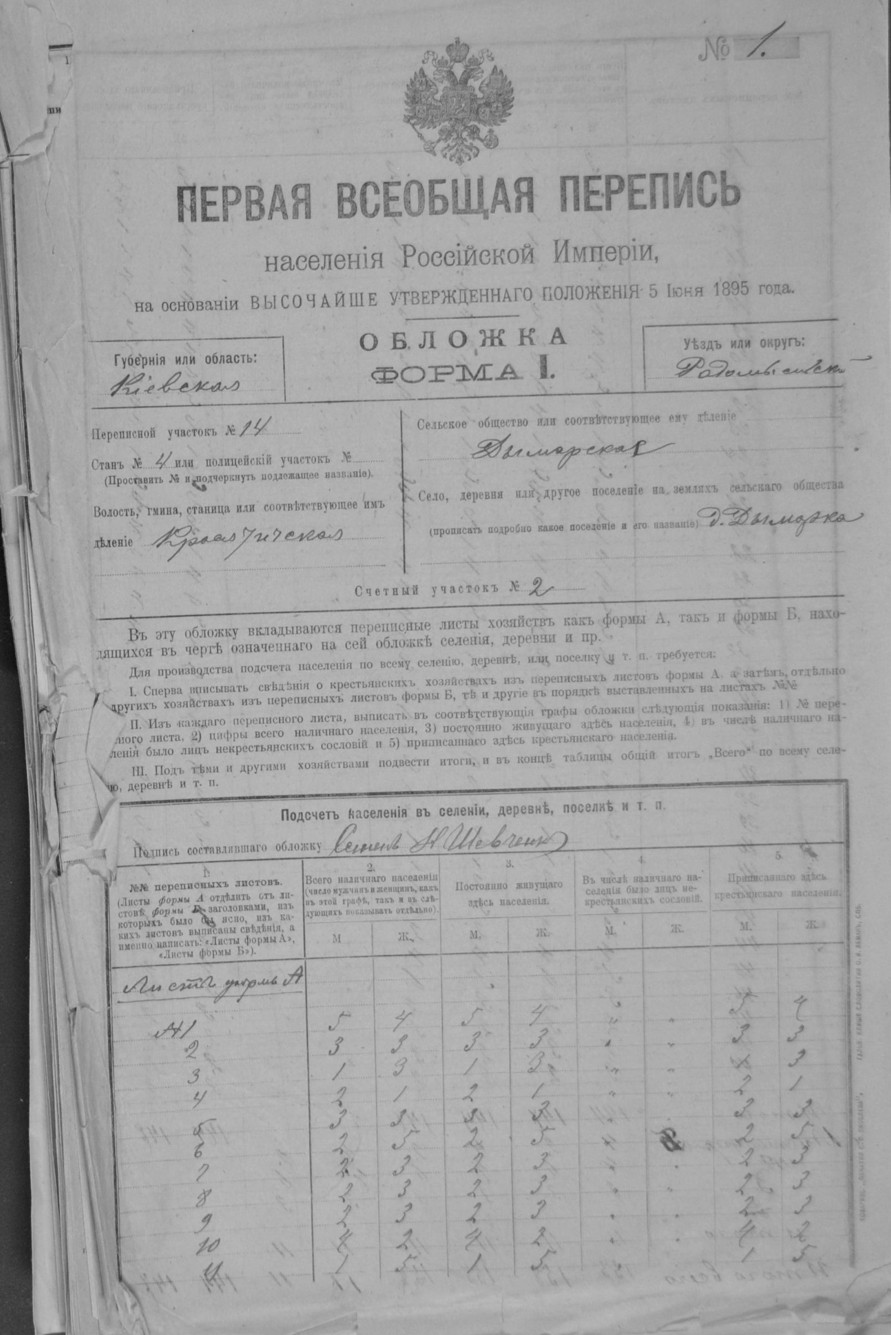 № 1.
ПЕРВАЯ ВСЕОБЩАЯ ПЕРЕПИСЬ
населенія Россійской Имперіи,
на основаніи ВЫСОЧАЙШЕ УТВЕРЖДЕННАГО ПОЛОЖЕНІЯ 5 Іюня 1895 года.
ОБЛОЖКА
ФОРМА I.
Губернія или область:
Кіевская
Уѣздъ или округъ:
Радомысльскій
Переписной участокъ № 14
Станъ № 4 или полицейскій участокъ №
(Проставить № и подчеркнуть подлежащее названіе).
Волость, гмина, станица или соотвѣтствующее имъ
дѣленіе
Сельское общество или соотвѣтствующее ему дѣленіе
Дымарская
Село, деревня или другое поселеніе на земляхъ сельскаго общества
(прописать подробно какое поселеніе и его названіе) д. Дымарка
Счетный участокъ № 2
Въ эту обложку вкладываются переписные листы хозяйствъ какъ формы А, такъ и формы Б, нахо-
дящихся въ чертѣ означеннаго на сей обложкѣ селенія, деревни и пр.
Для производства подсчета населенія по всему селенію, деревнѣ, или поселку и т. п. требуется:
I. Сперва вписывать свѣдѣнія о крестьянскихъ хозяйствахъ изъ переписныхъ листовъ формы А, а затѣмъ, отдѣльно
другихъ хозяйствахъ изъ переписныхъ листовъ формы Б, тѣ и другіе въ порядкѣ выставленныхъ на листахъ №№
II. Изъ каждаго переписного листа, выписать въ соотвѣтствующія графы обложки слѣдующія показанія: 1) № пере-
ного листа, 2) цифры всего наличнаго населенія, 3) постоянно живущаго здѣсь населенія, 4) въ числѣ наличнаго на-
ленія было лицъ некрестьянскихъ сословій и 5) приписаннаго здѣсь крестьянскаго населенія.
III. Подъ тѣми и другими хозяйствами подвести итоги, и въ концѣ таблицы общій итогъ „Всего“ по всему селе-
ю, деревнѣ и т. п.
Подсчетъ населенія въ селеніи, деревнѣ, поселкѣ и т. п.
Подпись составлявшаго обложку Шевченко
1. 2. 3. 4. 5.
№№ переписныхъ листовъ.
(Листы формы А отдѣлить отъ ли-
стовъ формы Б заголовками, изъ
которыхъ было бы ясно, изъ ка-
кихъ листовъ выписаны свѣдѣнія, а
именно написать: «Листы формы А»,
«Листы формы Б»).
Всего наличнаго населенія
(число мужчинъ и женщинъ, какъ
въ этой графѣ, такъ и въ слѣ-
дующихъ показывать отдѣльно).
Постоянно живущаго
здѣсь населенія.
Въ числѣ наличнаго на-
селенія было лицъ не-
крестьянскихъ сословій.
Приписаннаго здѣсь
крестьянскаго населенія.
М. Ж. М. Ж. М. Ж. М. Ж.
Листы формы А
№1 5 4 5 4 „ „ 5 4
2 3 3 3 3 „ „ 3 3
3 1 3 1 3 „ „ 1 3
4 2 1 2 1 „ „ 2 1
5 3 3 3 3 „ „ 3 3
6 2 5 2 5 „ „ 2 5
7 2 3 2 3 „ „ 2 3
8 2 3 2 3 „ „ 2 3
9 2 3 2 3 „ „ 2 3
10 4 2 4 2 „ „ 4 2
11 1 5 1 5 „ „ 1 5